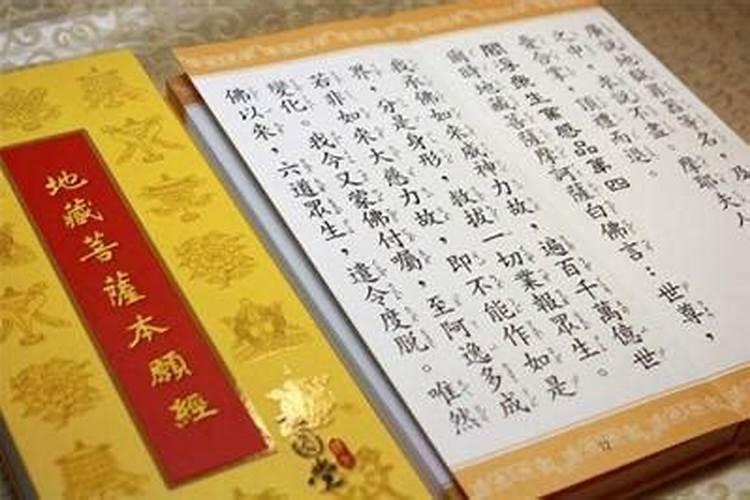 廣說地獄罪報等名，及
之中，求說不盡。摩耶夫人
愁憂合掌，頂禮而退。
閻浮眾生業感品第四
爾時地藏菩薩摩訶薩白佛言：世尊，
我承佛如來威神力故，遍百千萬億世
界，分是身形，救拔一切業報眾生。
若非如來大慈力故，即不能作如是
變化。我今又蒙佛付囑，至阿逸多成
佛以來，六道眾生，遣令度脫。唯然
12
地藏菩薩本願經